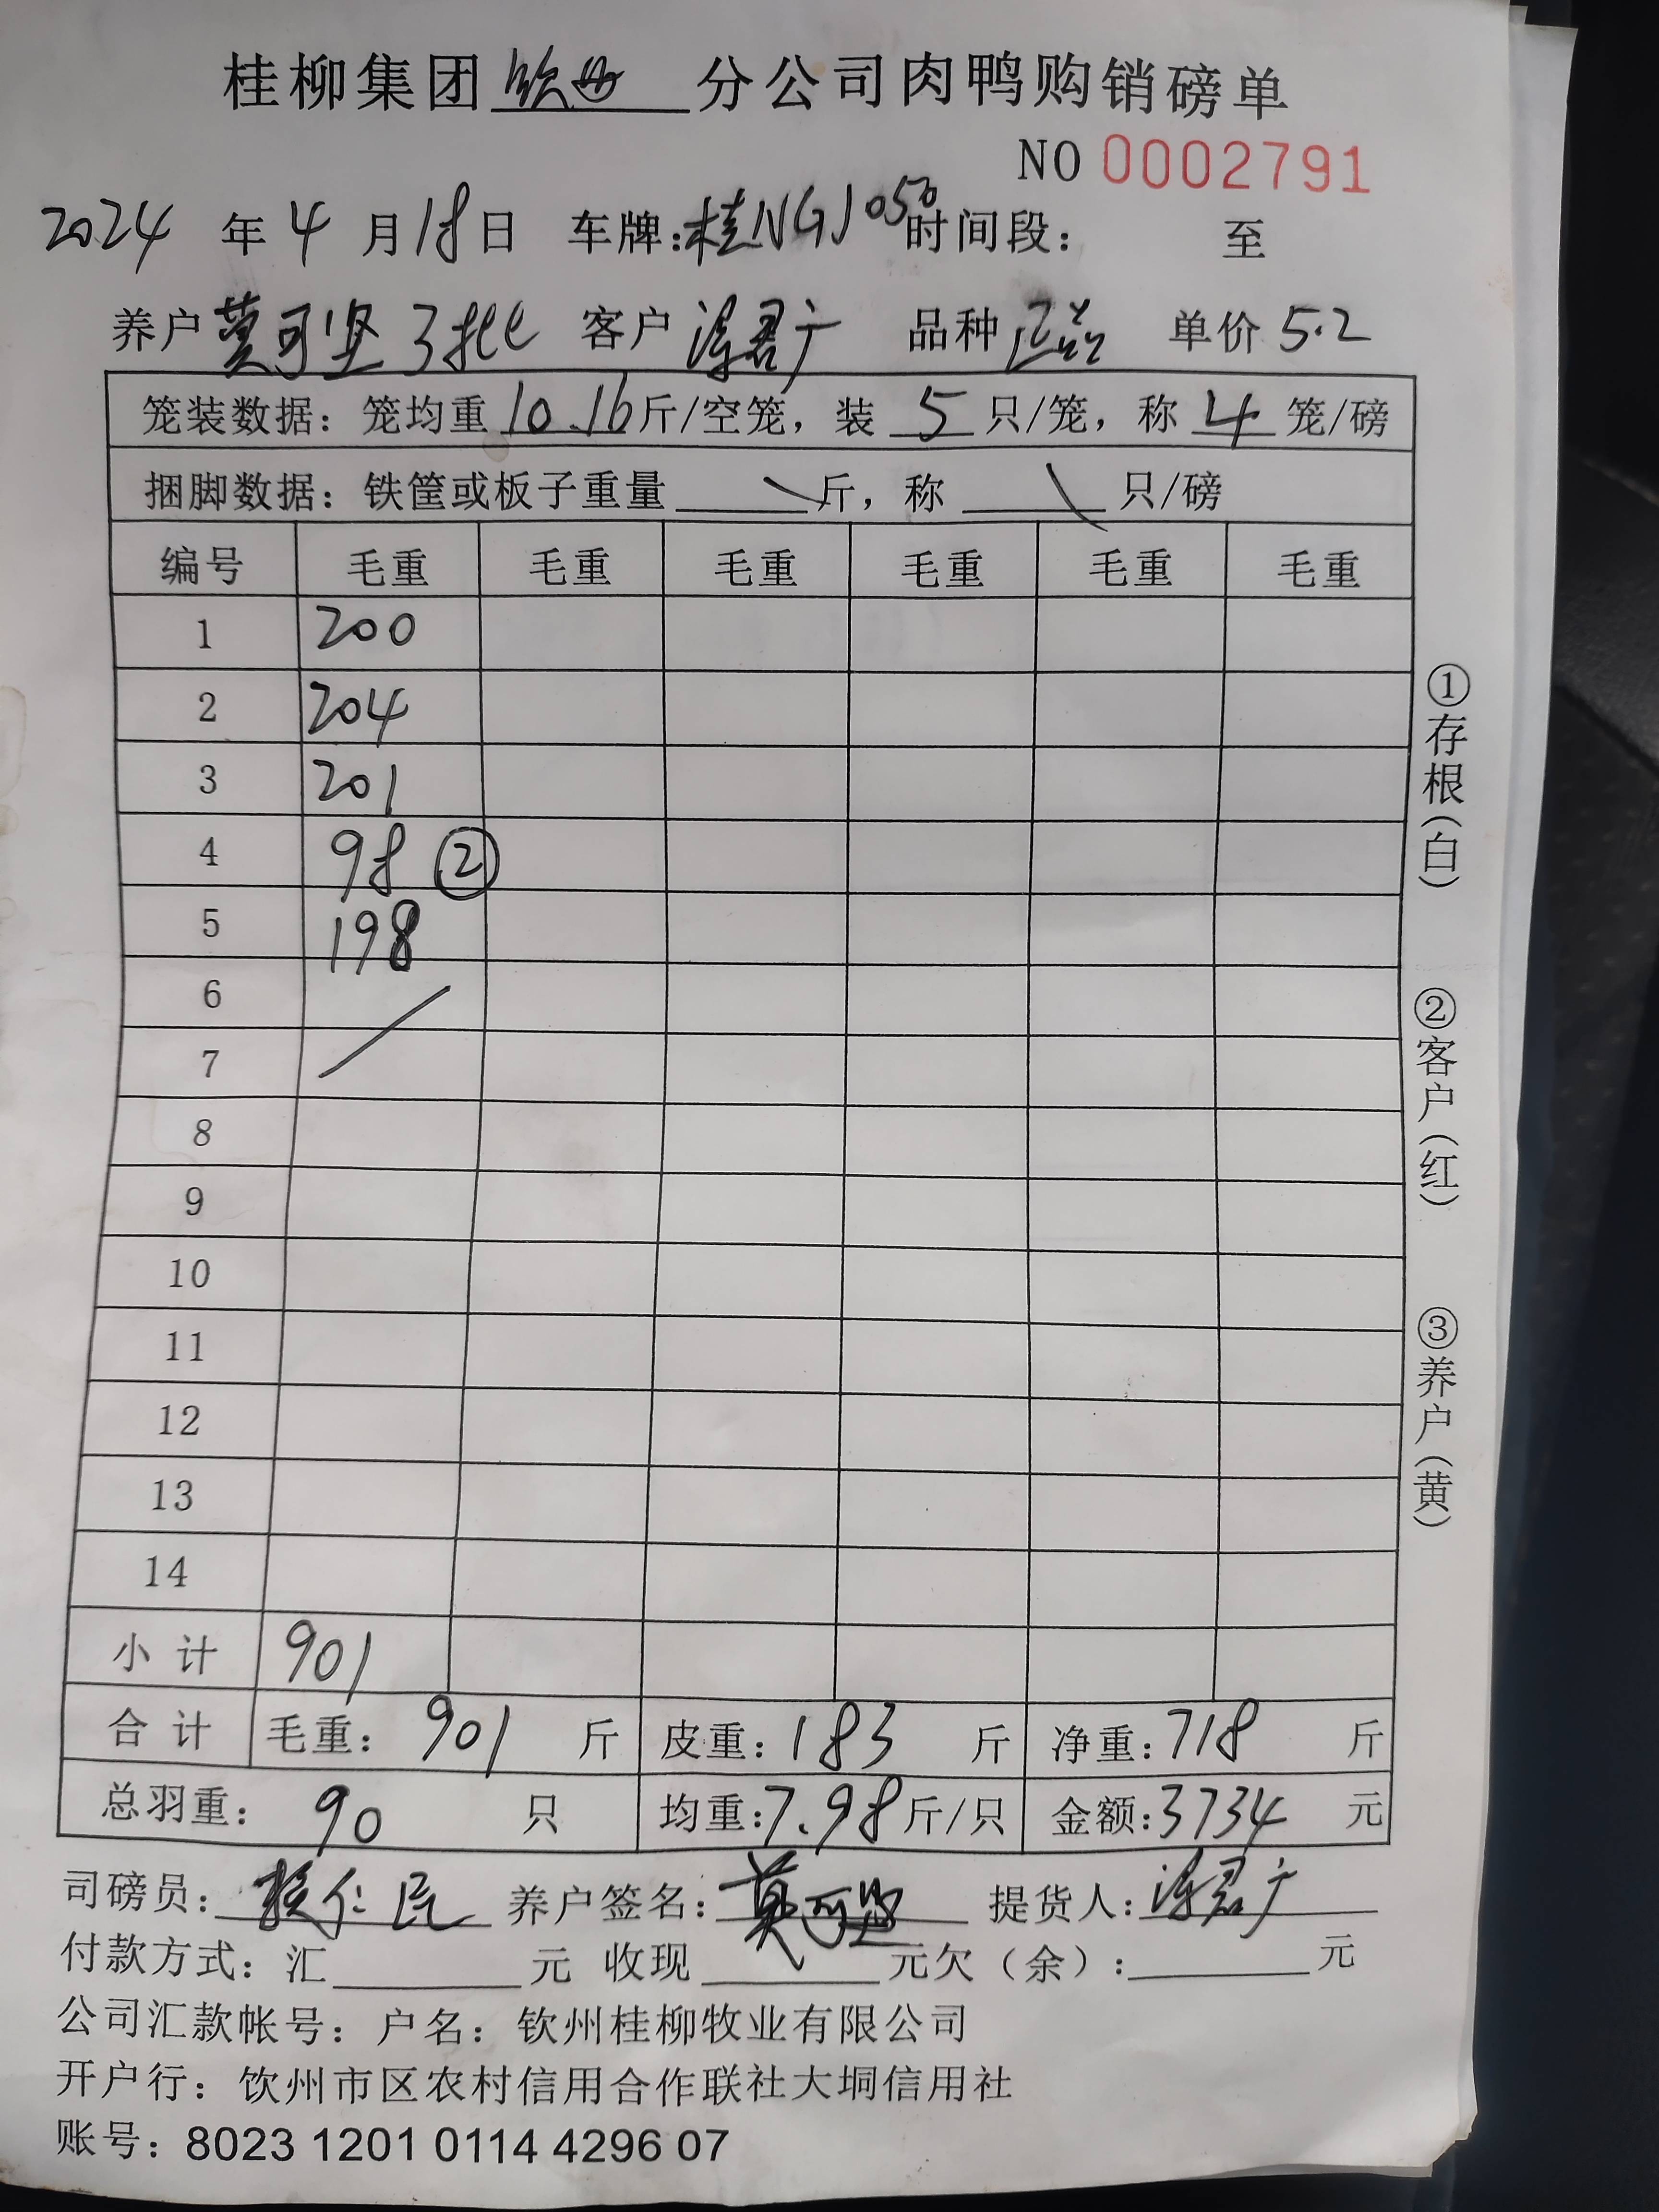 桂柳集团 钦州 分公司肉鸭购销磅单
NO 0002791
2024 年 4 月 18 日 车牌:桂NGJ050 时间段: 至
养户 莫可坚3批 客户 君广 品种 正品 单价 5.2
笼装数据: 笼均重 10.16 斤/空笼, 装 5 只/笼, 称 4 笼/磅
捆脚数据: 铁筐或板子重量 \ 斤, 称 \ 只/磅
编号 毛重 毛重 毛重 毛重 毛重 毛重
1 200
2 204
3 201
4 98 ②
5 198
6 /
7
8
9
10
11
12
13
14
小计 901
合计 毛重: 901 斤 皮重: 183 斤 净重: 718 斤
总羽重: 90 只 均重: 7.98 斤/只 金额: 3734 元
司磅员: 仁民 养户签名: 莫可坚 提货人: 君广
付款方式: 汇 元 收现 元欠(余): 元
公司汇款帐号: 户名: 钦州桂柳牧业有限公司
开户行: 饮州市区农村信用合作联社大垌信用社
账号: 8023 1201 0114 4296 07
①存根(白)
②客户(红)
③养户(黄)